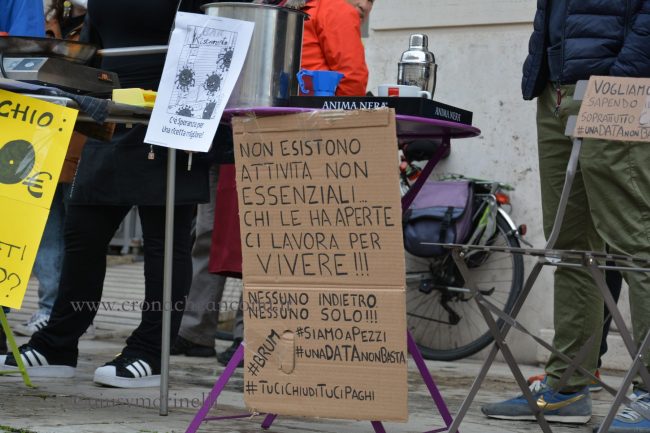 CHIO:
€
TTI
O?
Ristoranti
C'è Speranza per
Una ricetta migliore!
ANIMA NERA
ANIMA NERA
NON ESISTONO
ATTIVITÀ NON
ESSENZIALI...
CHI LE HA APERTE
CI LAVORA PER
VIVERE!!!
NESSUNO INDIETRO
NESSUNO SOLO!!!
#BRUM
#SIAMOAPEZZI
#UNADATANONBASTA
#TUCICHIUDITUCIPAGHI
VOGLIAMO
SAPENDO
SOPRATTUTTO
#UNADATANON
www.cronacheancona
©giusymorinelli